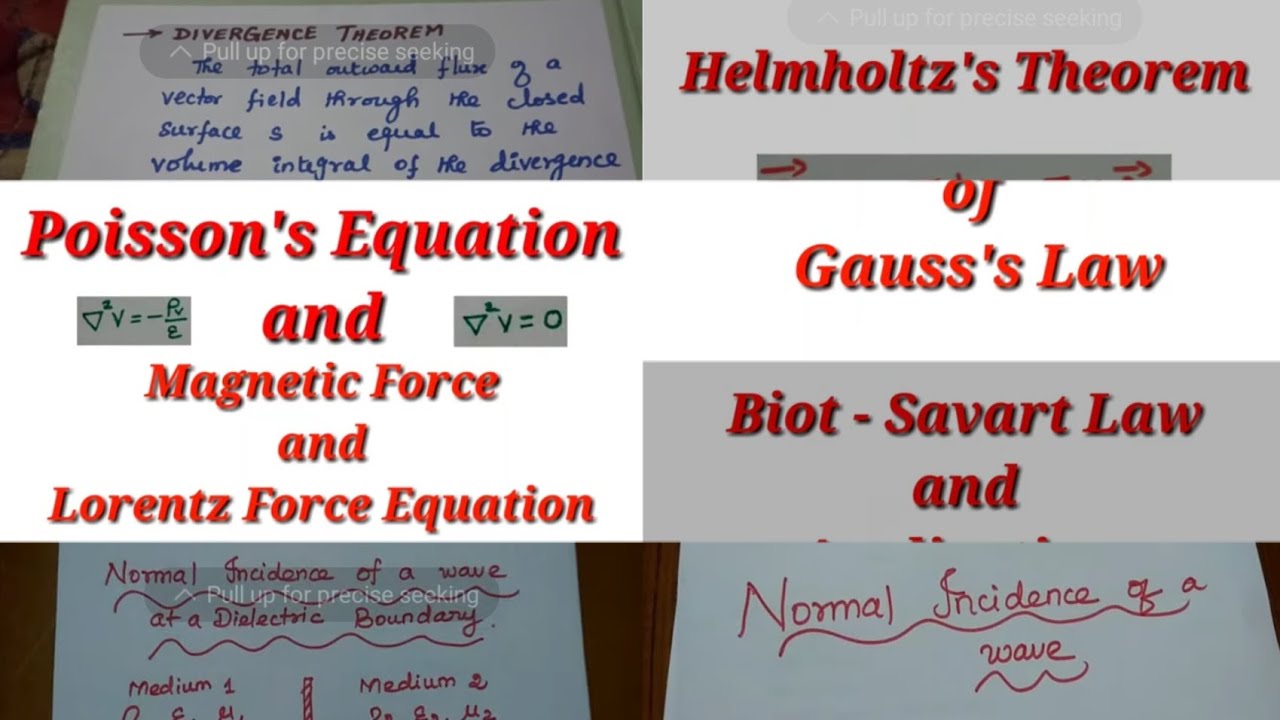 → DIVERGENCE THEOREM
Pull up for precise seeking
The total outward flux of a
vector field through the closed
surface s is equal to the
volume integral of the divergence
Pull up for precise seeking
Helmholtz's Theorem
Poisson's Equation
∇²V = -ρv/ε
and
∇²V = 0
Magnetic Force
and
Lorentz Force Equation
of
Gauss's Law
Biot - Savart Law
and
Normal Incidence of a wave
Pull up for precise seeking
at a Dielectric Boundary.
Medium 1
Medium 2
Normal Incidence of a
wave